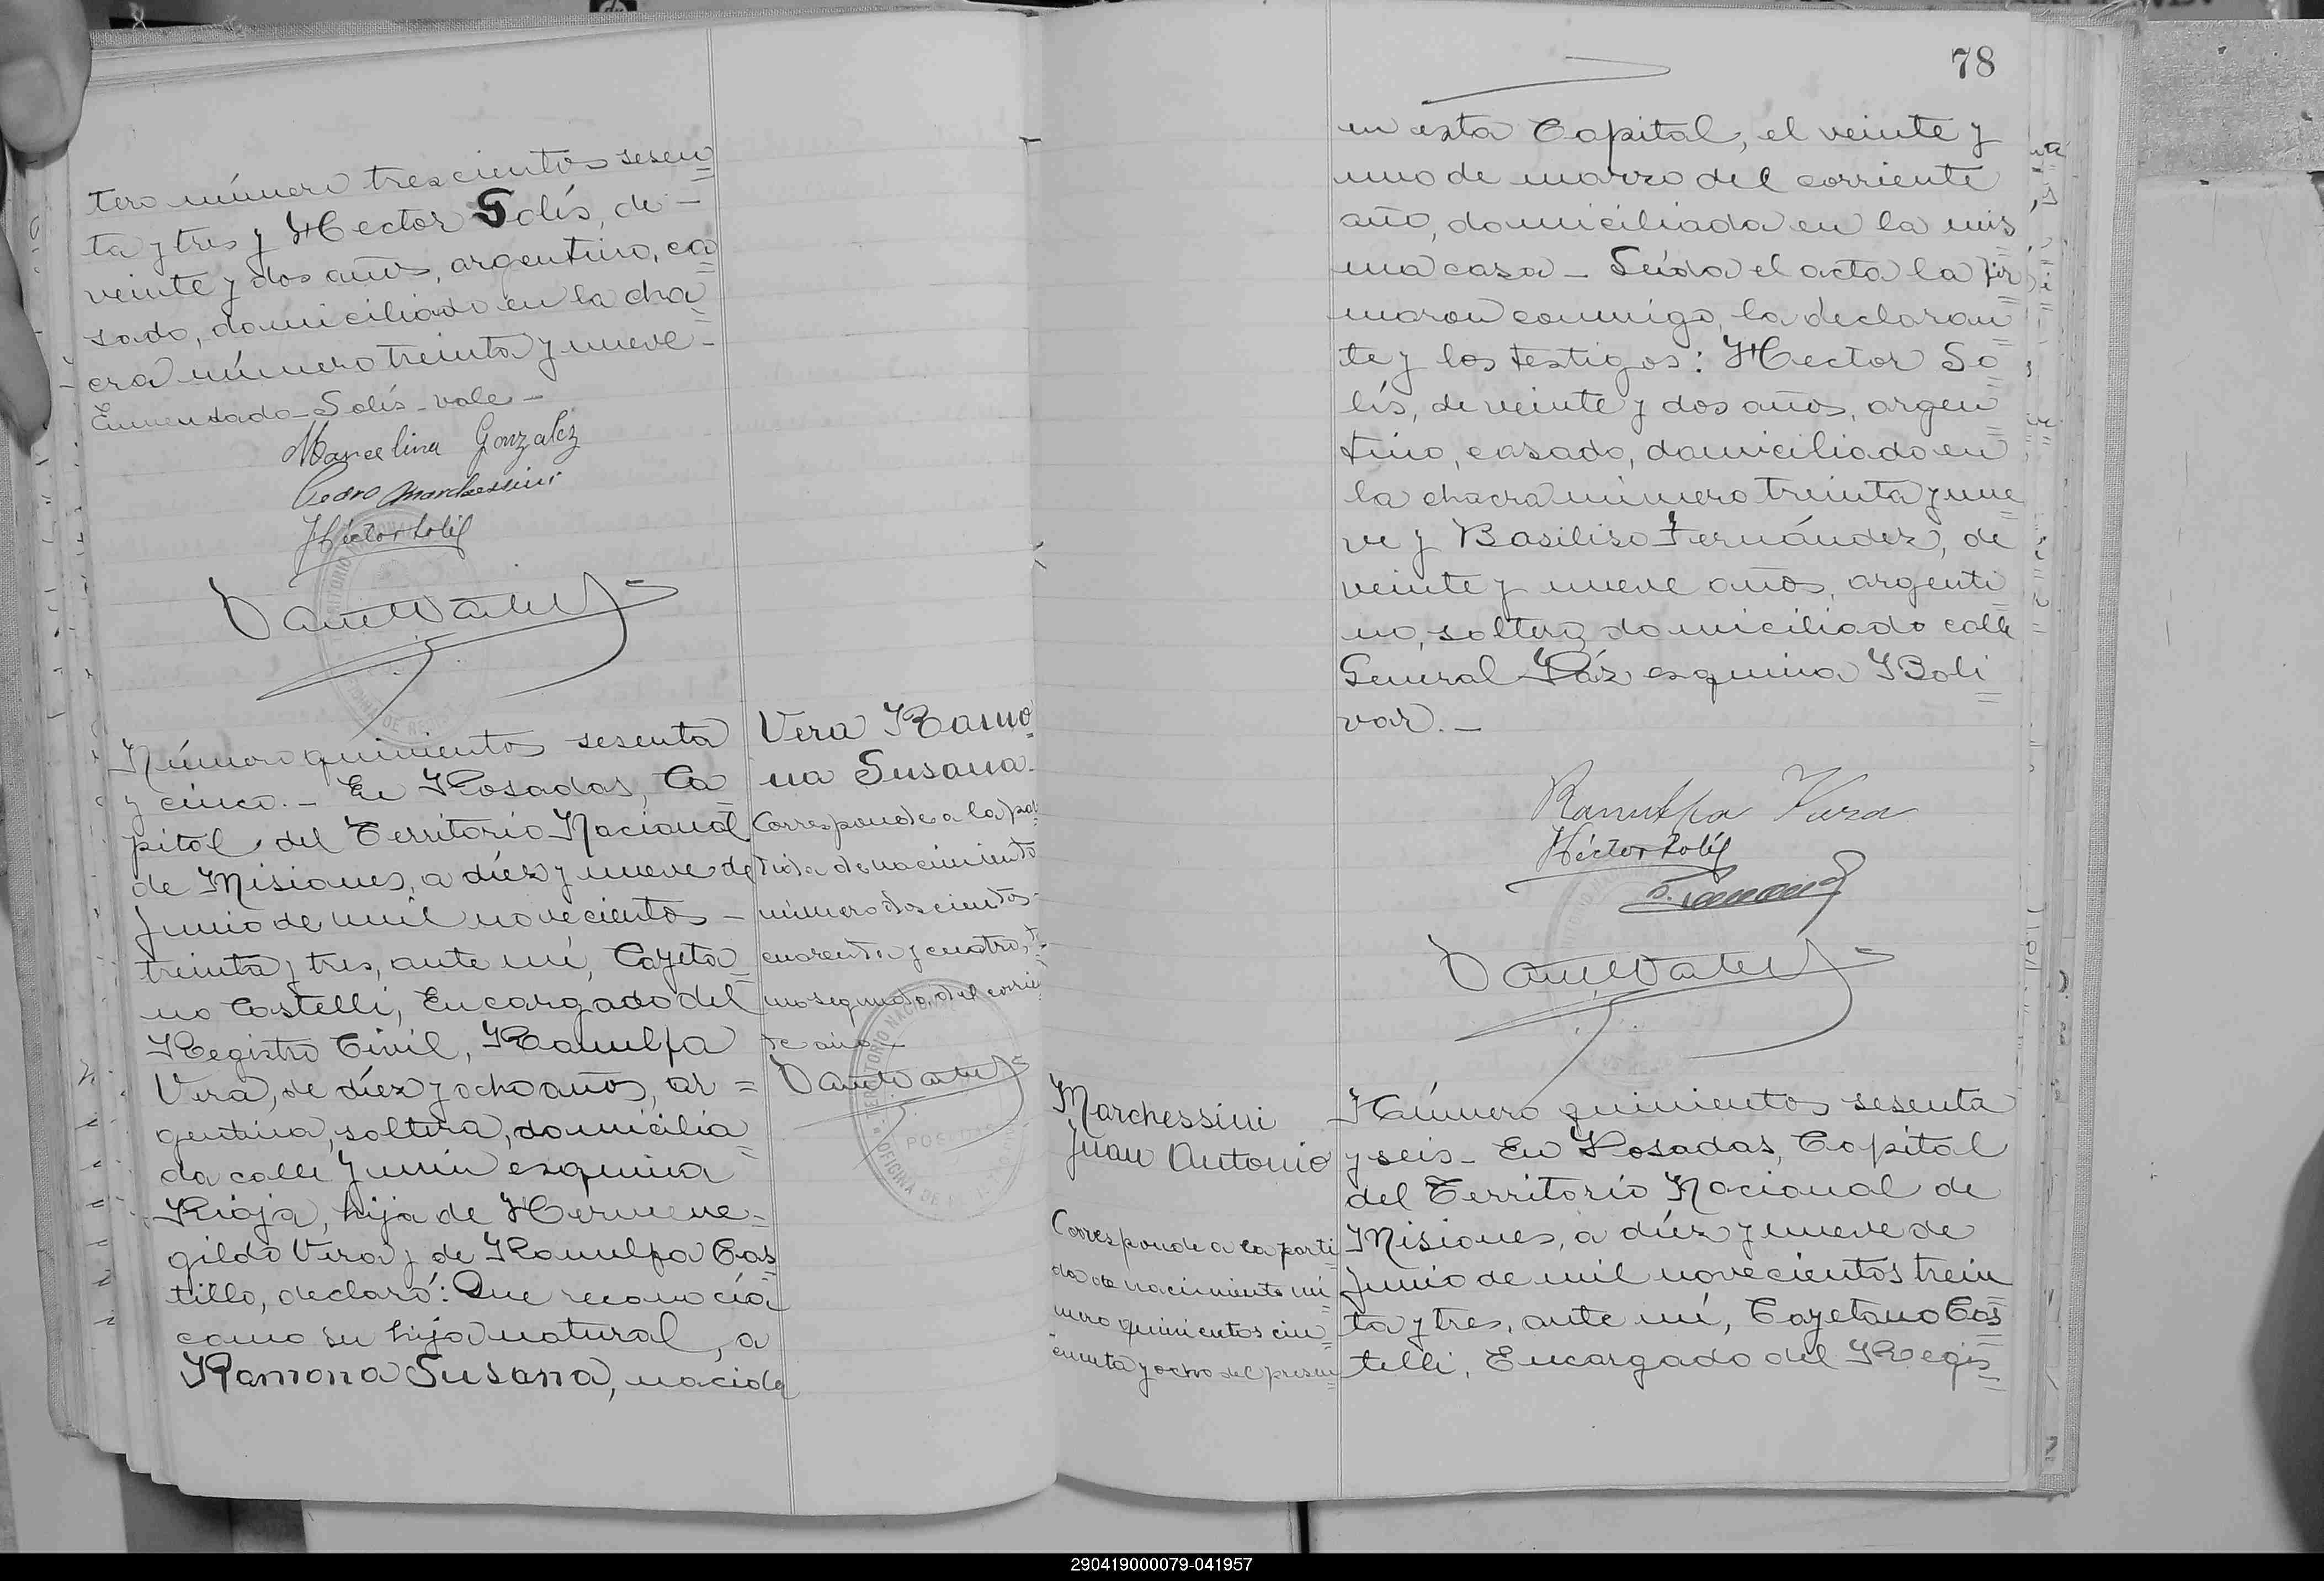 tero número trescientos sesen=
ta y tres y Hector Solís, de -
veinte y dos años, argentino, ca=
sado, domiciliado en la cha=
cra número treinta y nueve -
Enmendado - Solís - vale -
Marcelina Gonzalez
Pedro Marchessini
Héctor Solís
Número quinientos sesenta
y cinco. - En Posadas, Ca=
pital del Territorio Nacional
de Misiones, a diéz y nueve de
Junio de mil novecientos -
treinta y tres, ante mí, Cayeta=
no Castelli, Encargado del
Registro Civil, Ranulfa
Vera, de diéz y ocho años, ar=
gentina, soltera, domicilia=
da calle Junin esquina
Rioja, hija de Hermene=
gildo Vera y de Ranulfa Cas=
tillo, declaró: Que reconocía
como su hija natural, a
Ramona Susana, nacida
Vera Ramo=
na Susana.
Corresponde a la par=
tida de nacimiento
número doscientos -
cuarenta y cuatro, to=
mo segundo, del corrien=
te año -
TERRITORIO NACIONAL
POSADAS
OFICINA DE
78
en esta Capital, el veinte y
uno de marzo del corriente
año, domiciliada en la mis=
ma casa - Leída el acta la fir=
maron conmigo, la declaran=
te y los testigos: Hector So=
lís, de veinte y dos años, argen=
tino, casado, domiciliado en
la chacra número treinta y nue=
ve y Basiliso Fernández, de
veinte y nueve años, argenti=
no, soltero, domiciliado calle
General Páz esquina Boli=
var. -
Ranulfa Vera
Héctor Solís
Marchessini
Juan Antonio
Corresponde a la parti=
da de nacimiento nú=
mero quinientos cin=
cuenta y ocho del presen=
Número quinientos sesenta
y seis - En Posadas, Capital
del Territorio Nacional de
Misiones, a diéz y nueve de
Junio de mil novecientos trein=
ta y tres, ante mí, Cayetano Cas=
telli, Encargado del Regis=
290419000079-041957